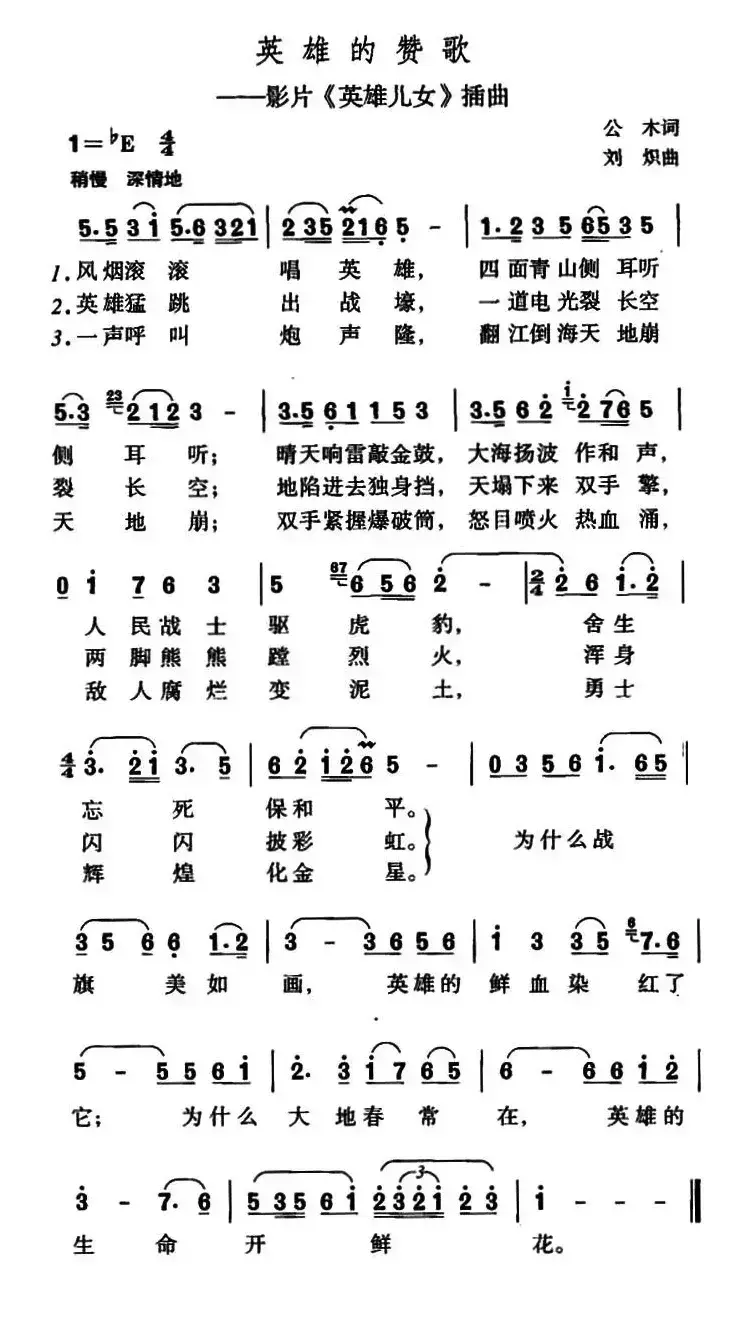 英雄的赞歌
——影片《英雄儿女》插曲
1=♭E 4/4
公木词
刘炽曲
稍慢 深情地
5.5 3i 5.6 321 | 235 216 5 - | 1.2 35 6535 |
1.风烟滚滚 唱英雄, 四面青山侧 耳听
2.英雄猛跳 出战壕, 一道电光裂 长空
3.一声呼叫 炮声隆, 翻江倒海天 地崩
5.3 23 212 3 - | 3.5 61 15 3 | 3.5 62 i 276 5 |
侧耳听; 晴天响雷敲金鼓, 大海扬波 作和声,
裂长空; 地陷进去独身挡, 天塌下来 双手擎,
天地崩; 双手紧握爆破筒, 怒目喷火 热血涌,
0 i 7 6 3 | 5 67 656 2 - | 2/4 26 i.2 |
人民战士驱虎豹, 舍生
两脚熊熊蹚烈火, 浑身
敌人腐烂变泥土, 勇士
4/4 3. 2i 3. 5 | 62 i26 5 - | 0356 i. 65 ‖
忘死保和平。
闪闪披彩虹。 为什么战
辉煌化金星。
35 6 6 1.2 | 3 - 36 56 | i 3 35 6 7.6 |
旗美如画, 英雄的 鲜血染 红了
5 - 55 6i | 2. 3 i7 65 | 6 - 66 i2 |
它; 为什么 大地春常在, 英雄的
3 - 7. 6 | 535 6i 2321 23 | i - - - ‖
3
生命开鲜花。